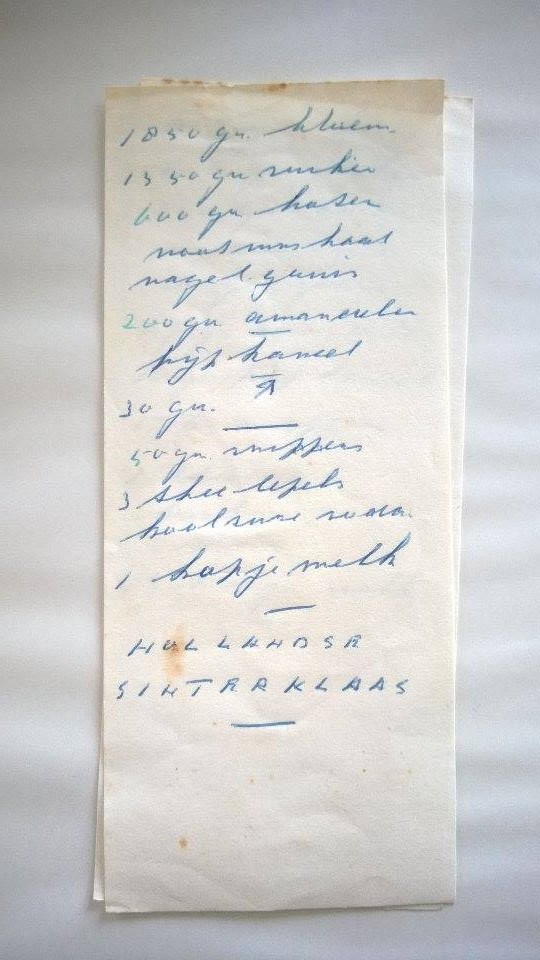 1850 gr. bloem
1350 gr suiker
600 gr boter
nootmuskaat
nagel. gruis
200 gr amandelen
fijp kaneel
30 gr.
50 gr. snippers
3 thee lepels
koolsure soda
1 kopje melk
HOLLANDSE
SINTRAKLAAS